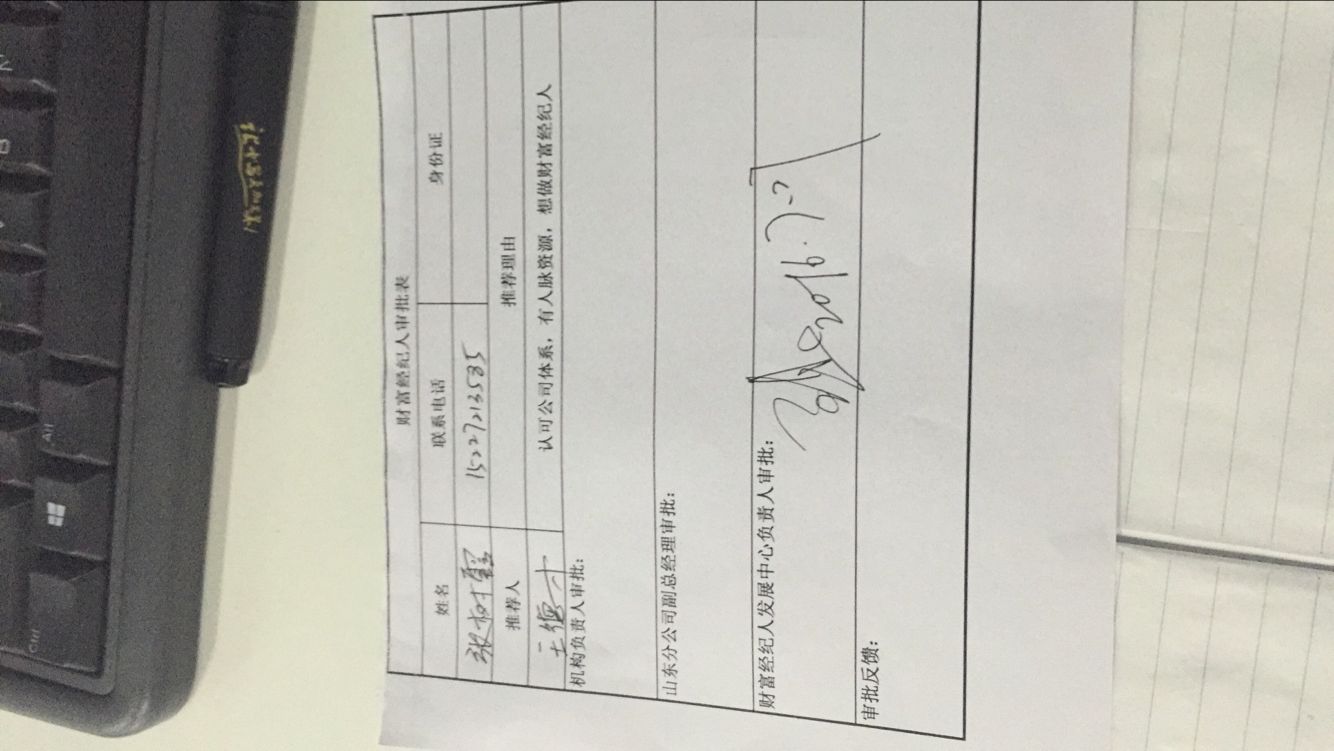 Ctrl
Alt
财富经纪人审批表
姓名 联系电话 身份证
张树霞 15227213585
推荐人 推荐理由
王德才 认可公司体系，有人脉资源，想做财富经纪人
机构负责人审批：
山东分公司副总经理审批：
财富经纪人发展中心负责人审批：
2016.7.27
审批反馈：